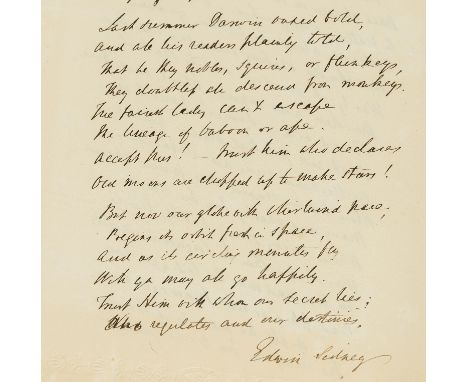 Last summer Darwin waxed bold,
and all his readers plainly told,
That be they nobles, squires, or flunkeys,
They doubtless all descend from monkeys.
The fairest lady can't escape
The lineage of baboon or ape.
accept this! – trust him who declares
Old moons are chopped up to make stars!
But now our globe with whirlwind pace,
Begins its orbit fresh in space,
And as its circling minutes fly
With ye may all go happily.
Trust Him with whom our secret lies;
Who regulates and our destinies,
Edwin Sidney